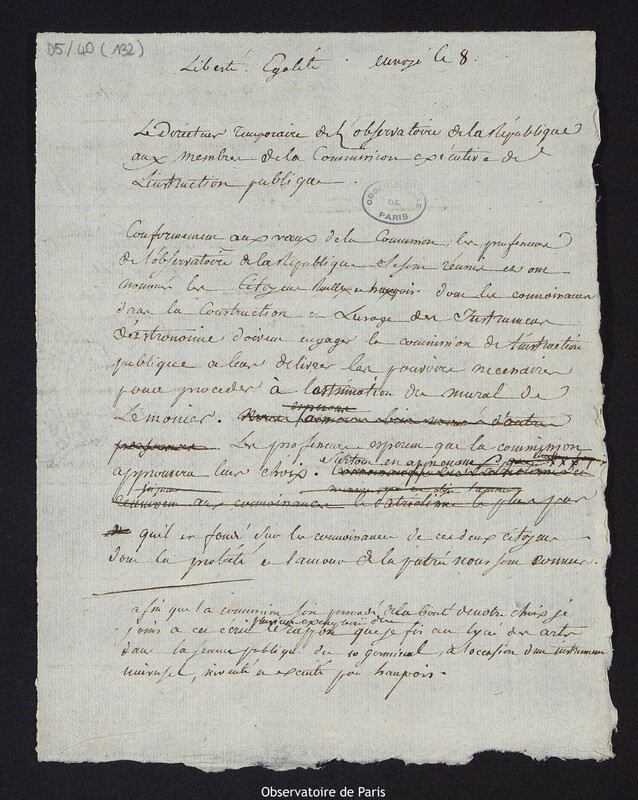 D5/40 (132)
Liberté. Egalité envoyé le 8.
Le Directeur temporaire de L'observatoire de la République
aux membres de la Commission exécutive de
L'instruction publique.
OBSERVATOIRE DE PARIS
Conformement aux vœux de la Commission, les professeurs
de l'observatoire de la République se sont réunis et ont
nommé les Citoyens haupois dont les connoissances
dans la Construction et L'usage des Instrumens
d'astronomie doivent engager la commission de l'instruction
publique a leur délivrer les pouvoirs necessaires
pour proceder à l'estimation du mural de
Lemonier.
Les professeurs esperent que la commission
approuvera leur choix. surtout en apprenant
qu'il est fondé sur la connoissance de ces deux citoyens
dont la probité et l'amour de la patrie nous sont connus.
afin que la commission soit persuadée de la bonté de notre choix je
joins a cet écrit le rapport que je fis au lycé des arts
dans la séance publique du 10 germinal, à l'occasion d'un instrument
universel, inventé et executé par haupois.
Observatoire de Paris